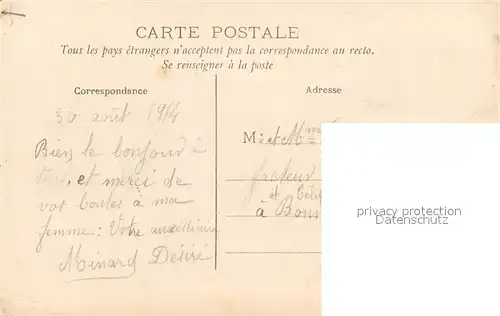 CARTE POSTALE
Tous les pays étrangers n'acceptent pas la correspondance au recto.
Se renseigner à la poste
Correspondance
Adresse
30 août 1914
M. et Mme
Bien le bonjour à
et merci de
facteur
vos bontés à ma
et
femme: Votre
à Bonn
Minard Désiré
privacy protection
Datenschutz